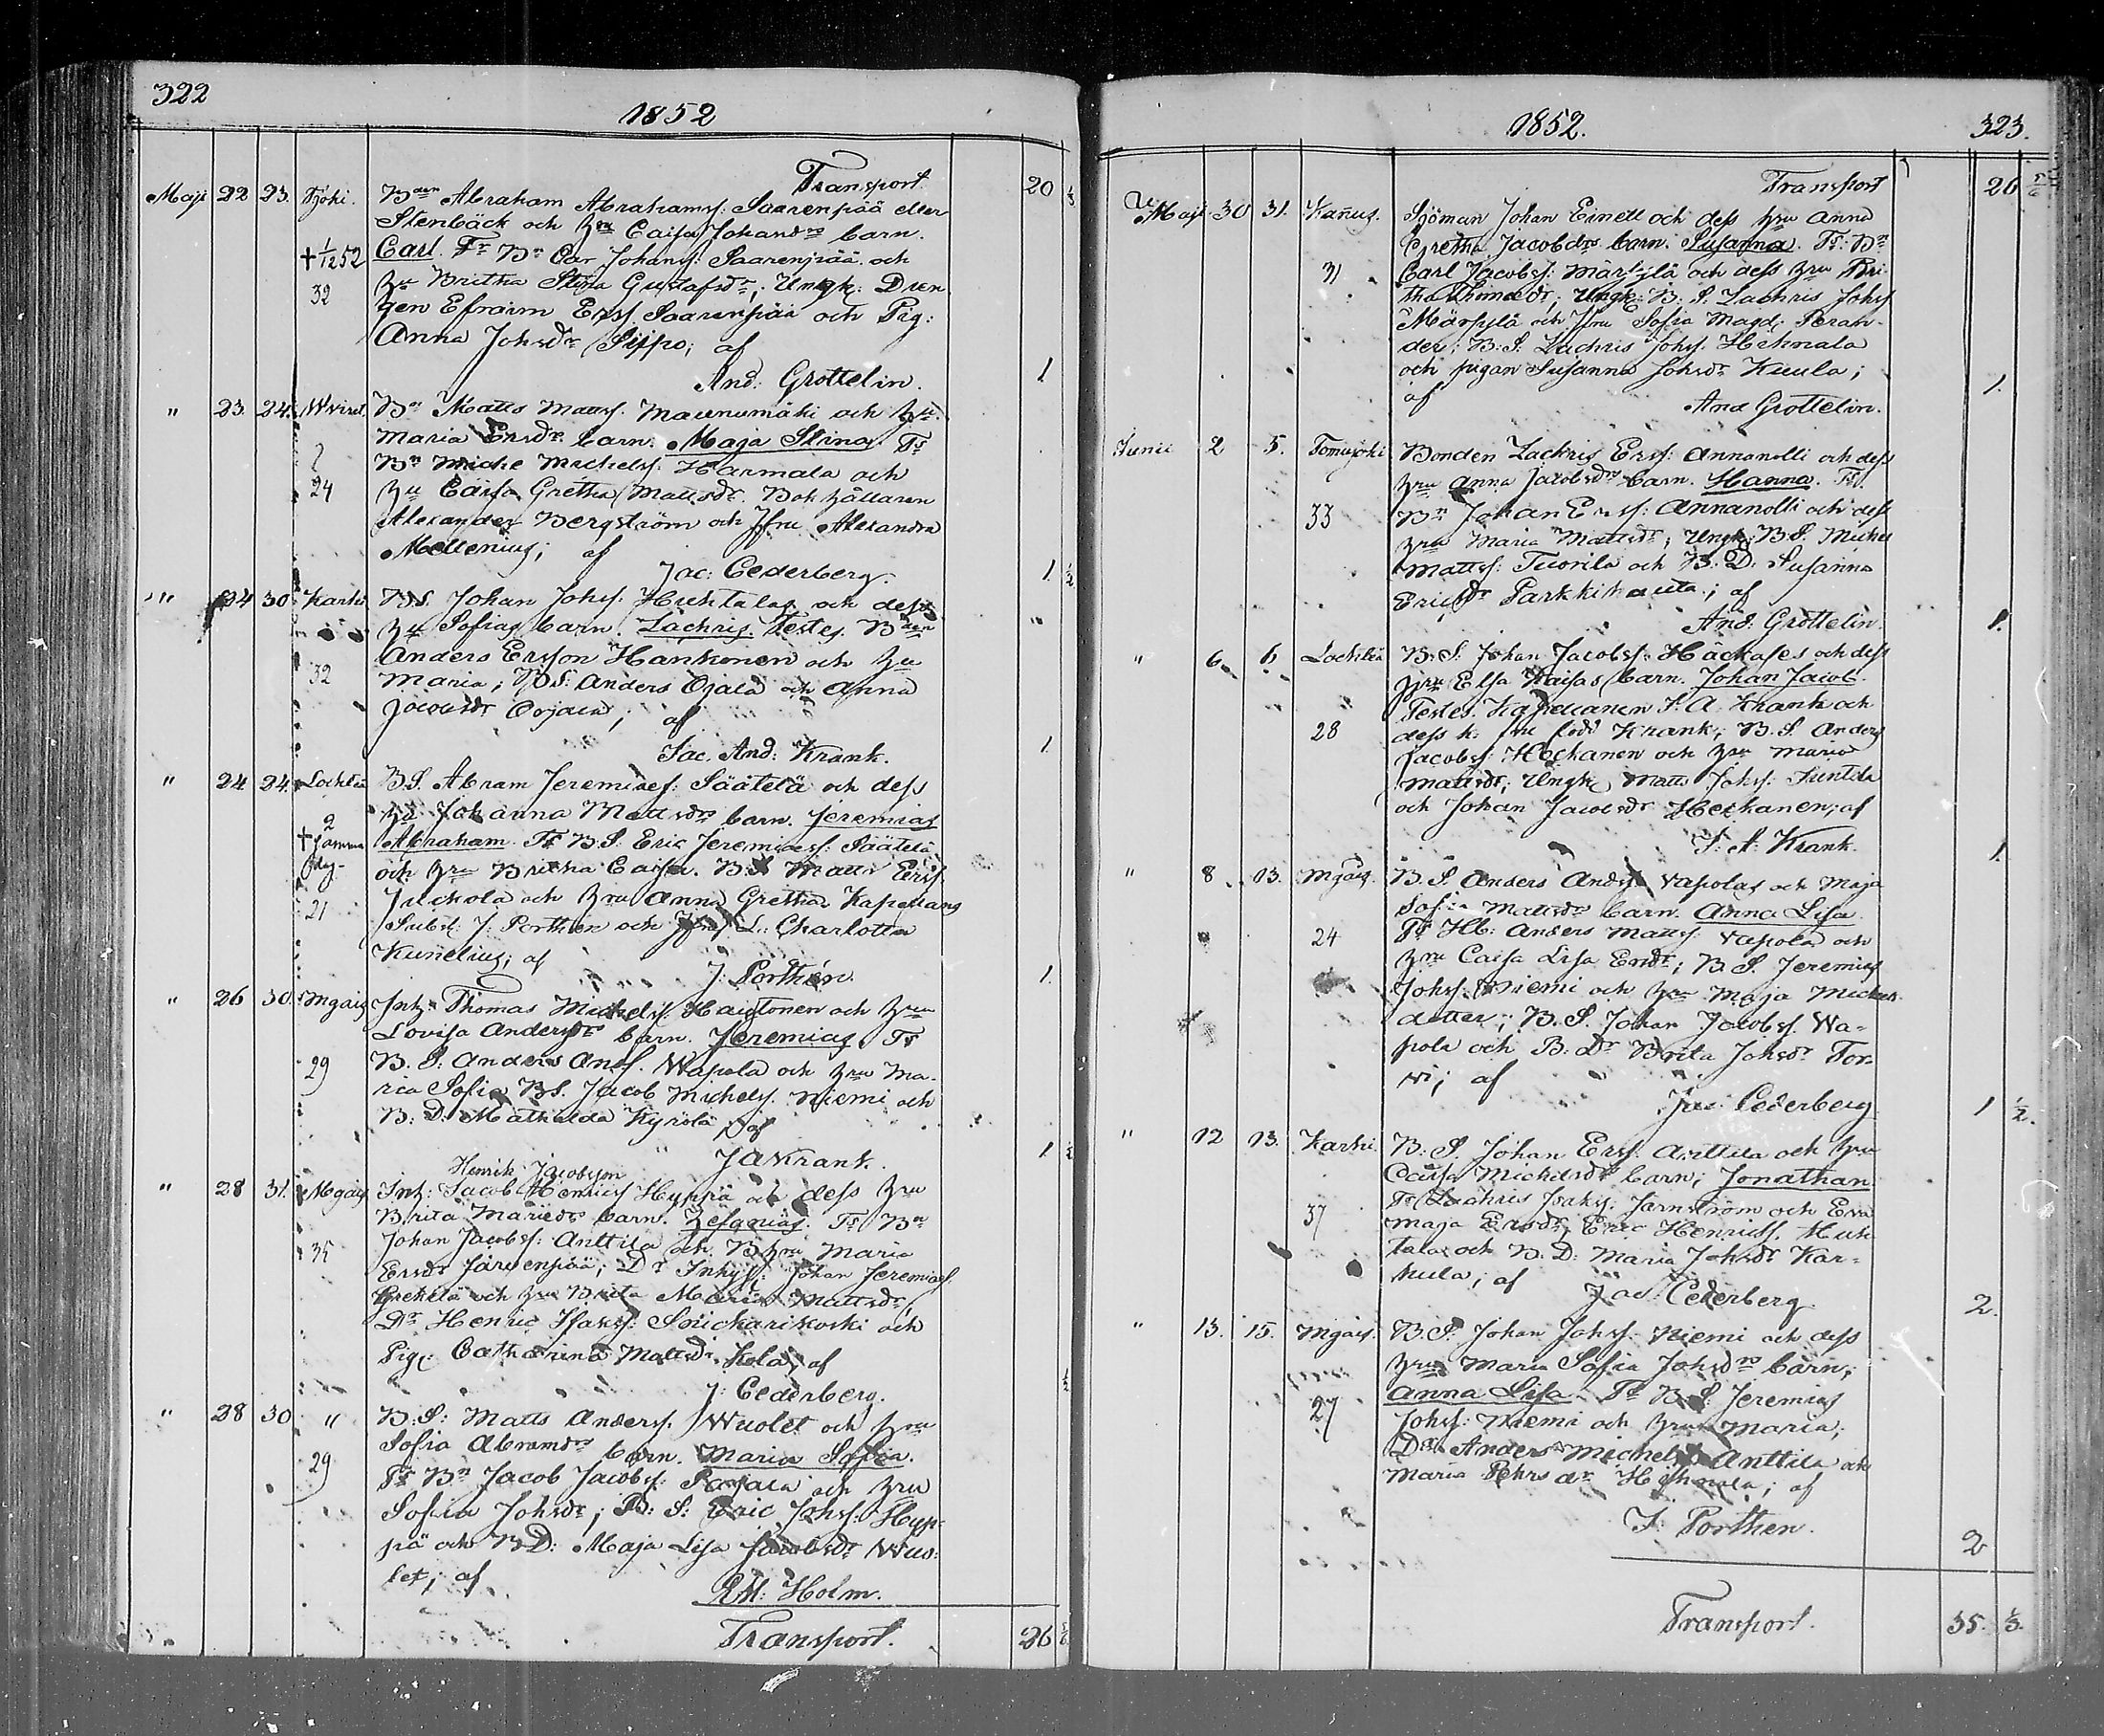 322
1852
Transport 20 1/3
Maji 22 23. Pjöki. Bden Abraham Abrahamss: Saarenpää eller
Stenbäck och hu Caisa Johansdrs barn.
+ 1/12 52 Carl. Ts Bn Car Johans: Saarenpää och
32 hu Britha Stina Gustafsdr; Ungk: Dren
gen Efraim Erss Saarenpää och Pig:
Anna Johsdr Sippo; af
And: Grottelin. 1
" 23. 24. Wviret. Bn Matts Mattss. Maunumäki och hu
Maria Ersdrs barn. Maja Stina. Ts
Bn Miche Michelss: Harmala och
24 hu Caisa Gretha Mattsdr. Bokhållaren
Alexander Bergström och Jfru Alexandra
Mellenius; af
Jac: Cederberg. 1 1/2
" 24 30 Karhi BS. Johan Johss. Huhtalas och dess
hu Sofias barn. Zachris. Testes. Bden
Anders Ersson Hankonen och hu
32 Maria; BS: Anders Ojala och Anna
Jacobsdr Ojala; af
Jac. And: Krank. 1
" 24 24. Lochteå B.S. Abram Jeremiaes: Säätelä och dess
hu Johanna Mattsdrs barn. Jeremias
+ samma Abraham. Ts B.S. Eric Jeremiaes: Säätelä
dag. och hru Britha Caisa. B.S. Matts Erss.
21 Juckola och hru Anna Gretha Kapellans
Subst: J. Porthén och Jfru L: Charlotta
Kunelius; af
J: Porthén. 1.
" 26 30. Mgais Inh: Thomas Michelss Hautonen och hru
Lovisa Andersdrs barn. Jeremias. Ts
29 B. S: Anders Ands. Wapola och hru Ma-
ria Sofia BS. Jacob Michelss. Niemi och
B: D: Mathilda Kyrölä; af
JAKrank. 1
Henrik Jacobsson
" 28 31. Mgais Inh: Jacob Henriess Hyppä och dess hru
Brita Mariedrs barn. Zefanias. Ts Bn
Johan Jacobss: Anttila och B hru Maria
35 Ersdr Järvenpää; Dr Inhys: Johan Jeremiaes.
och hru Brita Maria Mattsdr,
Dr Henric Isakss: Snickarikoski och
Pig: Catharina Mattsdr Kola; af
J: Cederberg. 1/2
" 28 30 " B. S: Matts Anderss. Wuolet och hru
Sofia Abramdrs barn. Maria Sofia.
29 Ts Bn Jacob Jacobss: Pajala och hru
Sofia Johsdr; B: S: Eric Johss: Hyp-
pä och B D: Maja Lisa Jacobsdr Wuo-
let; af
Holm.
Transport. 26 5/6
1852. 323.
Transport 26 5/6
Maji 30 31. Kanus. Sjöman Johan Einell och dess hru Anna
Gretha Jacobdrs barn. Susanna. Ts: Bn
31 Carl Jacobss: Märsylä och dess hru Bri-
tha Thomædr; Ungk: B: S. Zachris Johss
Märsylä och Jfru Sofia Magd: Peran-
der; B: S: Zachris Johss. Hihnala
och pigan Susanna Johsdr Kuula;
af And Grottelin. 1.
Junii 2 5. Tomujoki Bonden Zachris Erss: Annanolli och dess
hru Anna Jacobsdrs barn. Hanna. Ts.
33 Bn Johan Erss: Annanolli och dess
hru Maria Mattsdr; Ungk: B S. Michel
Mattss: Tuorila och B. D. Susanna
Ericsdr Parkkihauta; af
And. Grottelin. 1.
" 6 6 Lochteå B. S. Johan Jacobss. Häckases och dess
hru Elsa Kaisas barn. Johan Jacob.
Testes. Kapellanen J. A. Krank och
28 dess k. fru född Krank; B. S. Anders
Jacobss: Heckanen och hru Maria
Mattsdr; Ungk: Matts Johss: Suntila
och Johan Jacobsdr Heckanen; af
J: A: Krank. 1
" 8 13. Mgais. B. S. Anders Andss Vapolas och Maja
Sofia Mattsdrs barn. Anna Lisa.
24 Ts Hb: Anders Mattss. Vapola och
hru Caisa Lisa Ersdr; B. S. Jeremias
Johss. Niemi och hru Maja Michels
dotter; B. S. Johan Jacobss. Wa-
pola och B: Dr Brita Johsdr Tor-
vi; af
Jac: Cederberg 1 1/2.
" 12 13. Karhi. B. S. Johan Erss. Anttila och hru
Caisa Michelsdrs barn; Jonathan
Ts Zachris Isakss: Järnström och Eva
37 Maja Ersdr; Eric Henrikss. Huh-
tala och B. D: Maria Johsdr Kar-
hula; af Jac. Cederberg 2.
" 13. 15. Mgais. B. S. Johan Johss. Niemi och dess
hru Maria Sofia Johsdrs barn;
27 Anna Lisa. Ts B S. Jeremias
Johss: Niemi och hru Maria;
Dr Anders Michelss Anttila och
Maria Pehrsdr Hihnala; af
J: Porthen. 2
Transport. 35. 1/3.